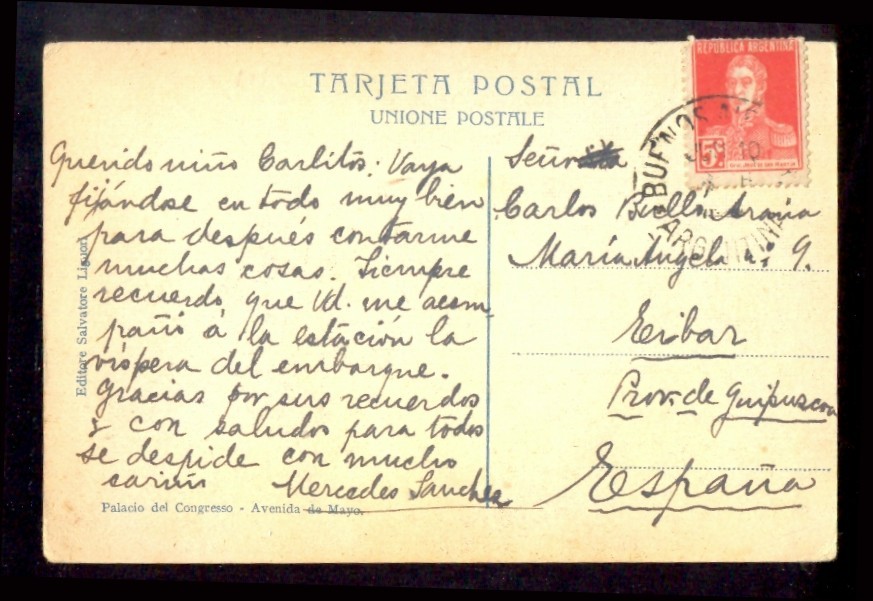 TARJETA POSTAL
UNIONE POSTALE
Querido niño Carlitos: Vaya
fijándose en todo muy bien
para después contarme
muchas cosas. Siempre
recuerdo que Vd. me acom-
pañó á la estación la
víspera del embarque.
Gracias por sus recuerdos
y con saludos para todos
se despide con mucho
cariño Mercedes Sanchez
Palacio del Congresso - Avenida de Mayo.
Editore Salvatore Liguori
REPUBLICA ARGENTINA
5c
BUENOS AIRES
10
ARGENTINA
Carlos Bello Arana
María Angela 9.
Eibar
Prov. de Guipuscoa
España